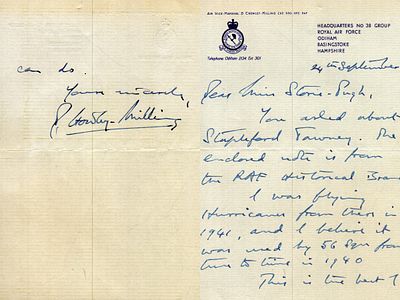 AIR VICE-MARSHAL D CROWLEY-MILLING CBE DSO DFC RAF
HEADQUARTERS No 38 GROUP
ROYAL AIR FORCE
ODIHAM
BASINGSTOKE
HAMPSHIRE
Telephone Odiham 2134 Ext 301
24th September
Dear Miss Stone-Pugh,
You asked about
Stapleford Tawney. The
enclosed note is from
the RAF Historical Bran
I was flying
Hurricanes from there in
1941, and I believe it
was used by 56 Sqn from
time to time in 1940
This is the best I
can do.
Yours sincerely,
Crowley-Milling